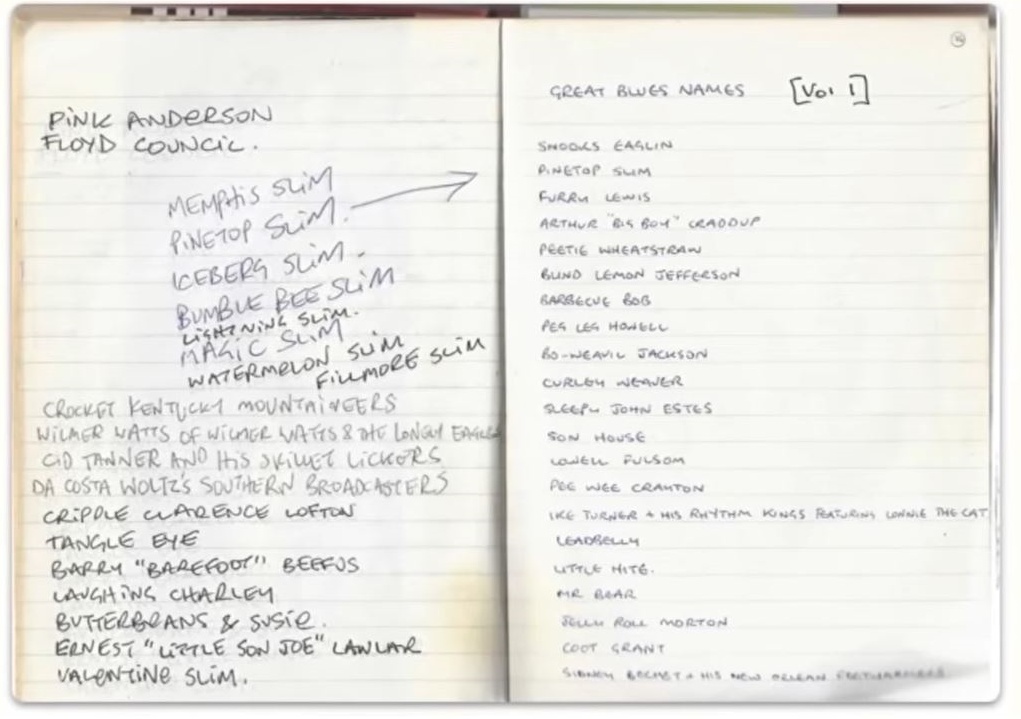 PINK ANDERSON
FLOYD COUNCIL.
MEMPHIS SLIM
PINETOP SLIM.
ICEBERG SLIM.
BUMBLE BEE SLIM
LIGHTNING SLIM.
MAGIC SLIM
WATERMELON SLIM
FILLMORE SLIM
CROCKET KENTUCKY MOUNTAINEERS
WILMER WATTS OF WILMER WATTS & THE LONELY EAGLES
CID TANNER AND HIS SKILLET LICKERS
DA COSTA WOLTZ'S SOUTHERN BROADCASTERS
CRIPPLE CLARENCE LOFTON
TANGLE EYE
BARRY "BAREFOOT" BEEFUS
LAUGHING CHARLEY
BUTTERBEANS & SUSIE.
ERNEST "LITTLE SON JOE" LAWLAR
VALENTINE SLIM.
GREAT BLUES NAMES [VOL 1]
SNOOKS EAGLIN
PINETOP SLIM
FURRY LEWIS
ARTHUR "BIG BOY" CRADDUP
PEETIE WHEATSTRAW
BLIND LEMON JEFFERSON
BARBECUE BOB
PEG LEG HOWELL
BO-WEAVIL JACKSON
CURLEY WEAVER
SLEEPY JOHN ESTES
SON HOUSE
LOWELL FULSOM
PEE WEE CRAYTON
IKE TURNER + HIS RHYTHM KINGS FEATURING LONNIE THE CAT
LEADBELLY
LITTLE HITE.
MR BEAR
JELLY ROLL MORTON
COOT GRANT
SIDNEY BECHET + HIS NEW ORLEAN FEETWARMERS